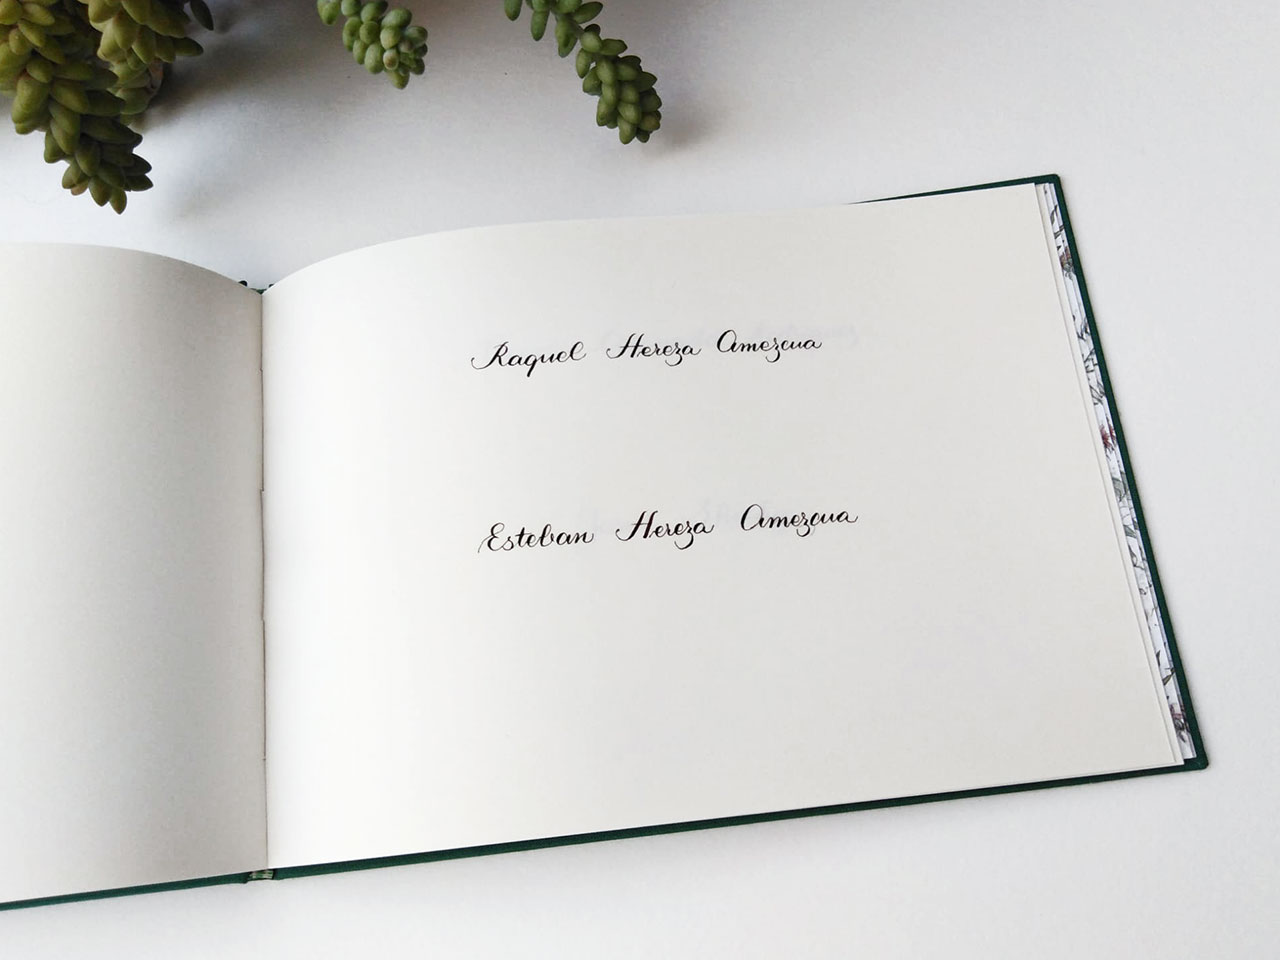 Raquel Hereza Amezcua
Esteban Hereza Amezcua